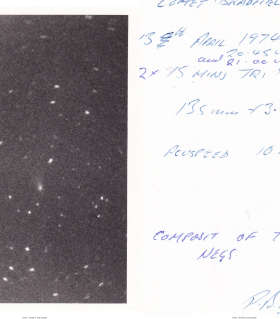 COMET BRADFIEL
13 th APRIL 1974
20.45 U
and 21.00 U
2 x 15 MINS TRI
135mm f3.
ACUSPEED 10.
COMPOSIT OF T
NEGS.